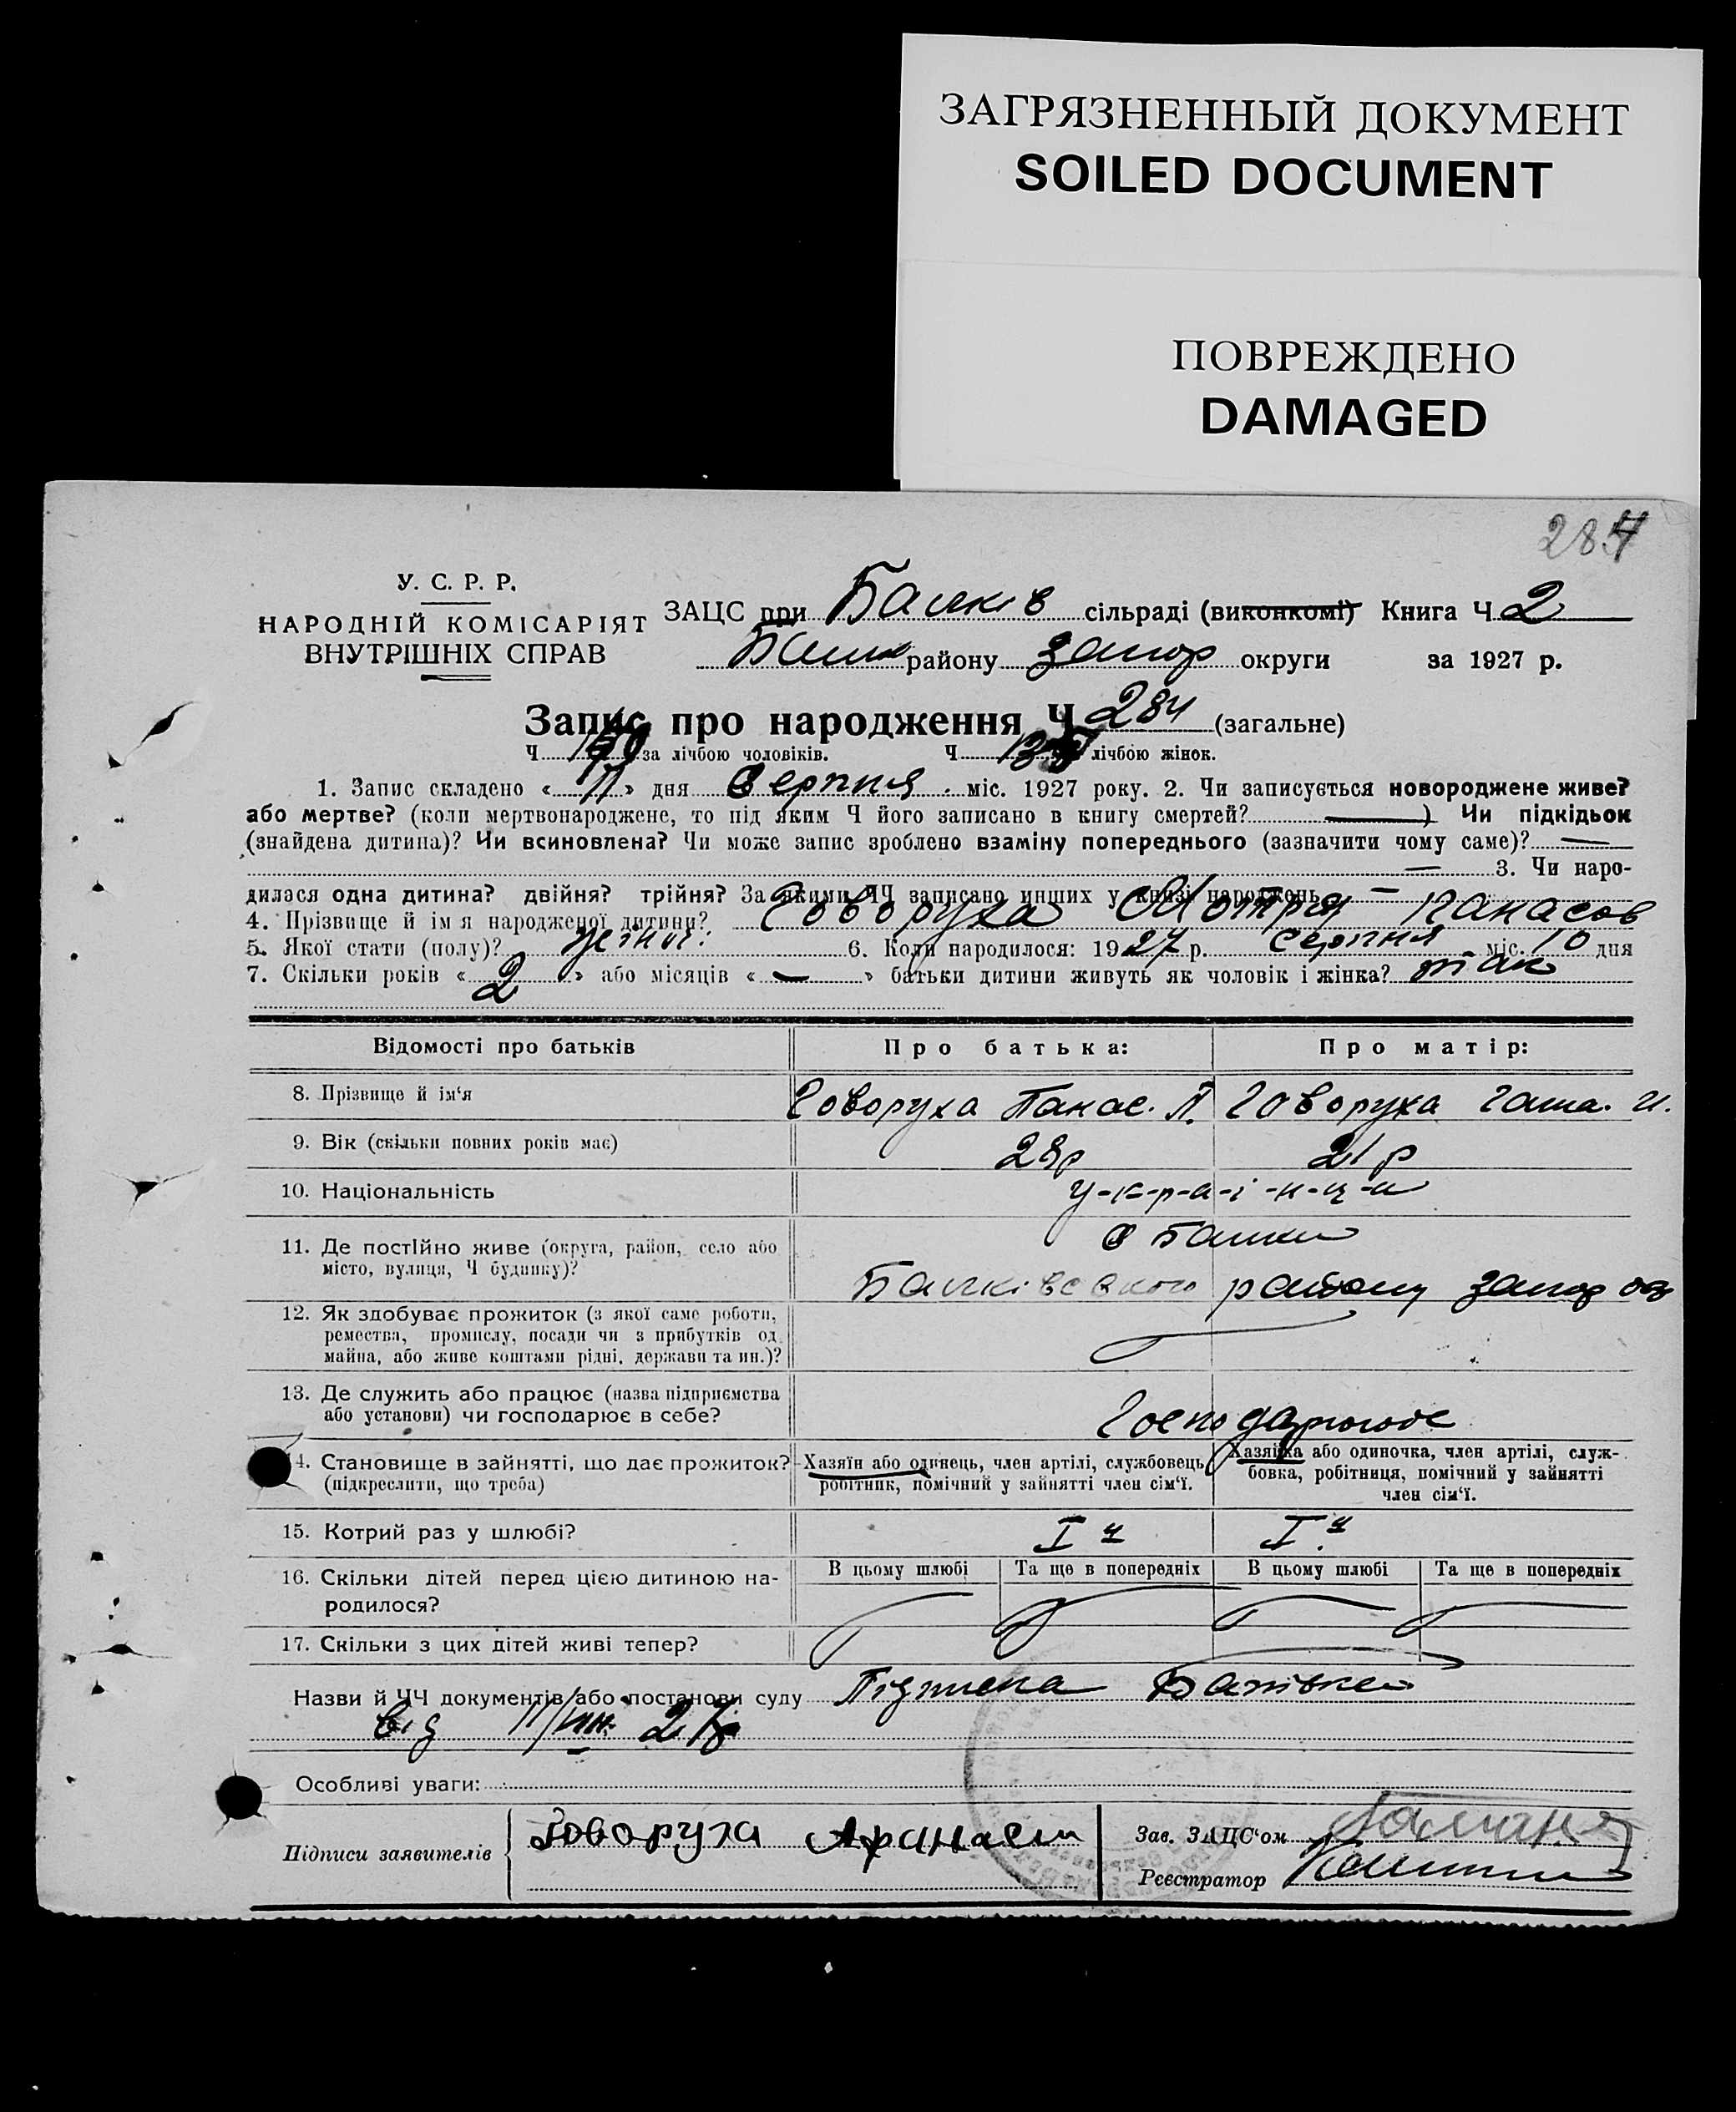 ЗАГРЯЗНЕННЫЙ ДОКУМЕНТ
SOILED DOCUMENT
ПОВРЕЖДЕНО
DAMAGED
284
У. С. Р. Р.
НАРОДНІЙ КОМІСАРІЯТ
ВНУТРІШНІХ СПРАВ
ЗАЦС при Балків сільраді (виконкомі) Книга Ч 2
району Запор округи за 1927 р.
Запис про народження Ч 284 (загальне)
Ч за лічбою чоловіків. Ч лічбою жінок.
1. Запис складено « 11 » дня Серпня міс. 1927 року. 2. Чи записується новороджене живе?
або мертве? (коли мертвонароджене, то під яким Ч його записано в книгу смертей? — ) Чи підкідьок
(знайдена дитина)? Чи всиновлена? Чи може запис зроблено взаміну попереднього (зазначити чому саме)? —
— 3. Чи наро-
дилася одна дитина? двійня? трійня? За якими ЧЧ записано инших у книзі народжень —
4. Прізвище й ім я народженої дитини? Говоруха Мотря Панасов
5. Якої стати (полу)? жіночої 6. Коли народилося: 1927 р. серпня міс. 10 дня
7. Скільки років « 2 » або місяців « — » батьки дитини живуть як чоловік і жінка? так
Відомості про батьків Про батька: Про матір:
8. Прізвище й ім'я Говоруха Панас. П. Говоруха Гаша. И.
9. Вік (скільки повних років має) 28р 21р
10. Національність у-к-р-а-ї-н-ц-и
11. Де постійно живе (округа, район, село або
місто, вулиця, Ч будинку)?
с Балки
Балківського району Запор ок
12. Як здобуває прожиток (з якої саме роботи,
ремества, промислу, посади чи з прибутків од
майна, або живе коштами рідні, держави та ин.)?
13. Де служить або працює (назва підприємства
або установи) чи господарює в себе?
Господарюює
14. Становище в зайнятті, що дає прожиток?
(підкреслити, що треба)
Хазяїн або одинець, член артілі, службовець
робітник, помічний у зайнятті член сім'ї.
Хазяйка або одиночка, член артілі, служ-
бовка, робітниця, помічний у зайнятті
член сім'ї.
15. Котрий раз у шлюбі? I й I й
16. Скільки дітей перед цією дитиною на-
родилося?
В цьому шлюбі Та ще в попередніх В цьому шлюбі Та ще в попередніх
17. Скільки з цих дітей живі тепер?
Назви й ЧЧ документів або постанови суду Підписка Батьків
від 11/VIII 27р
Особливі уваги:
Підписи заявителів Говоруха Афанасій
Зав. ЗАЦС'ом
Реєстратор